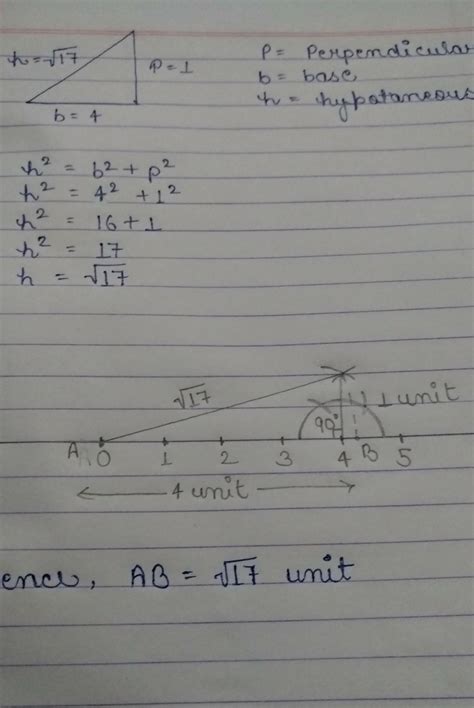 h = √17
P = 1
b = 4
P = Perpendicular
b = base
h = hypotaneous
h² = b² + p²
h² = 4² + 1²
h² = 16 + 1
h² = 17
h = √17
√17
90°
1 unit
A 0 1 2 3 4 B 5
4 unit
ence, AB = √17 unit